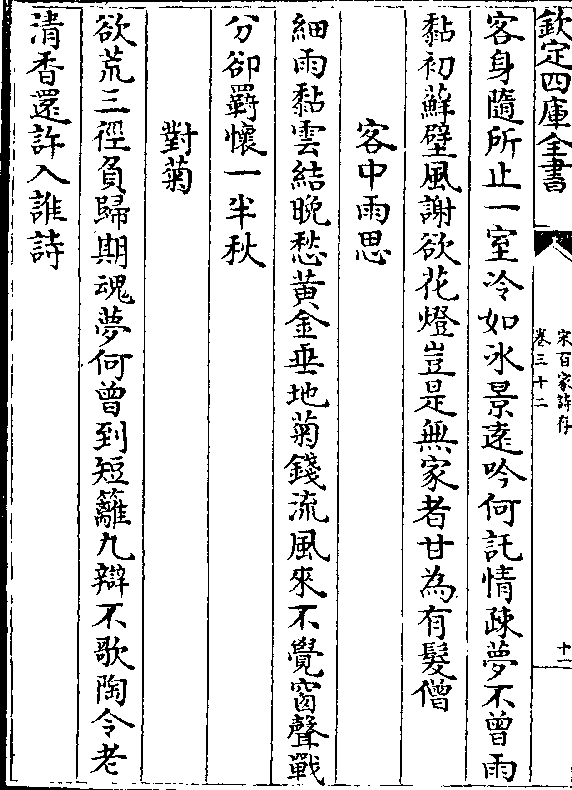 欽定四庫全書
宋百家詩存
卷三十二
十二
客身隨所止一室冷如冰景遠吟何託情疎夢不曾雨
黏初蘚壁風謝欲花燈豈是無家者甘為有髮僧
客中雨思
細雨黏雲結晚愁黃金垂地菊錢流風來不覺窗聲戰
分卻羇懷一半秋
對菊
欲荒三徑負歸期魂夢何曾到短籬九辯不歌陶令老
清香還許入誰詩